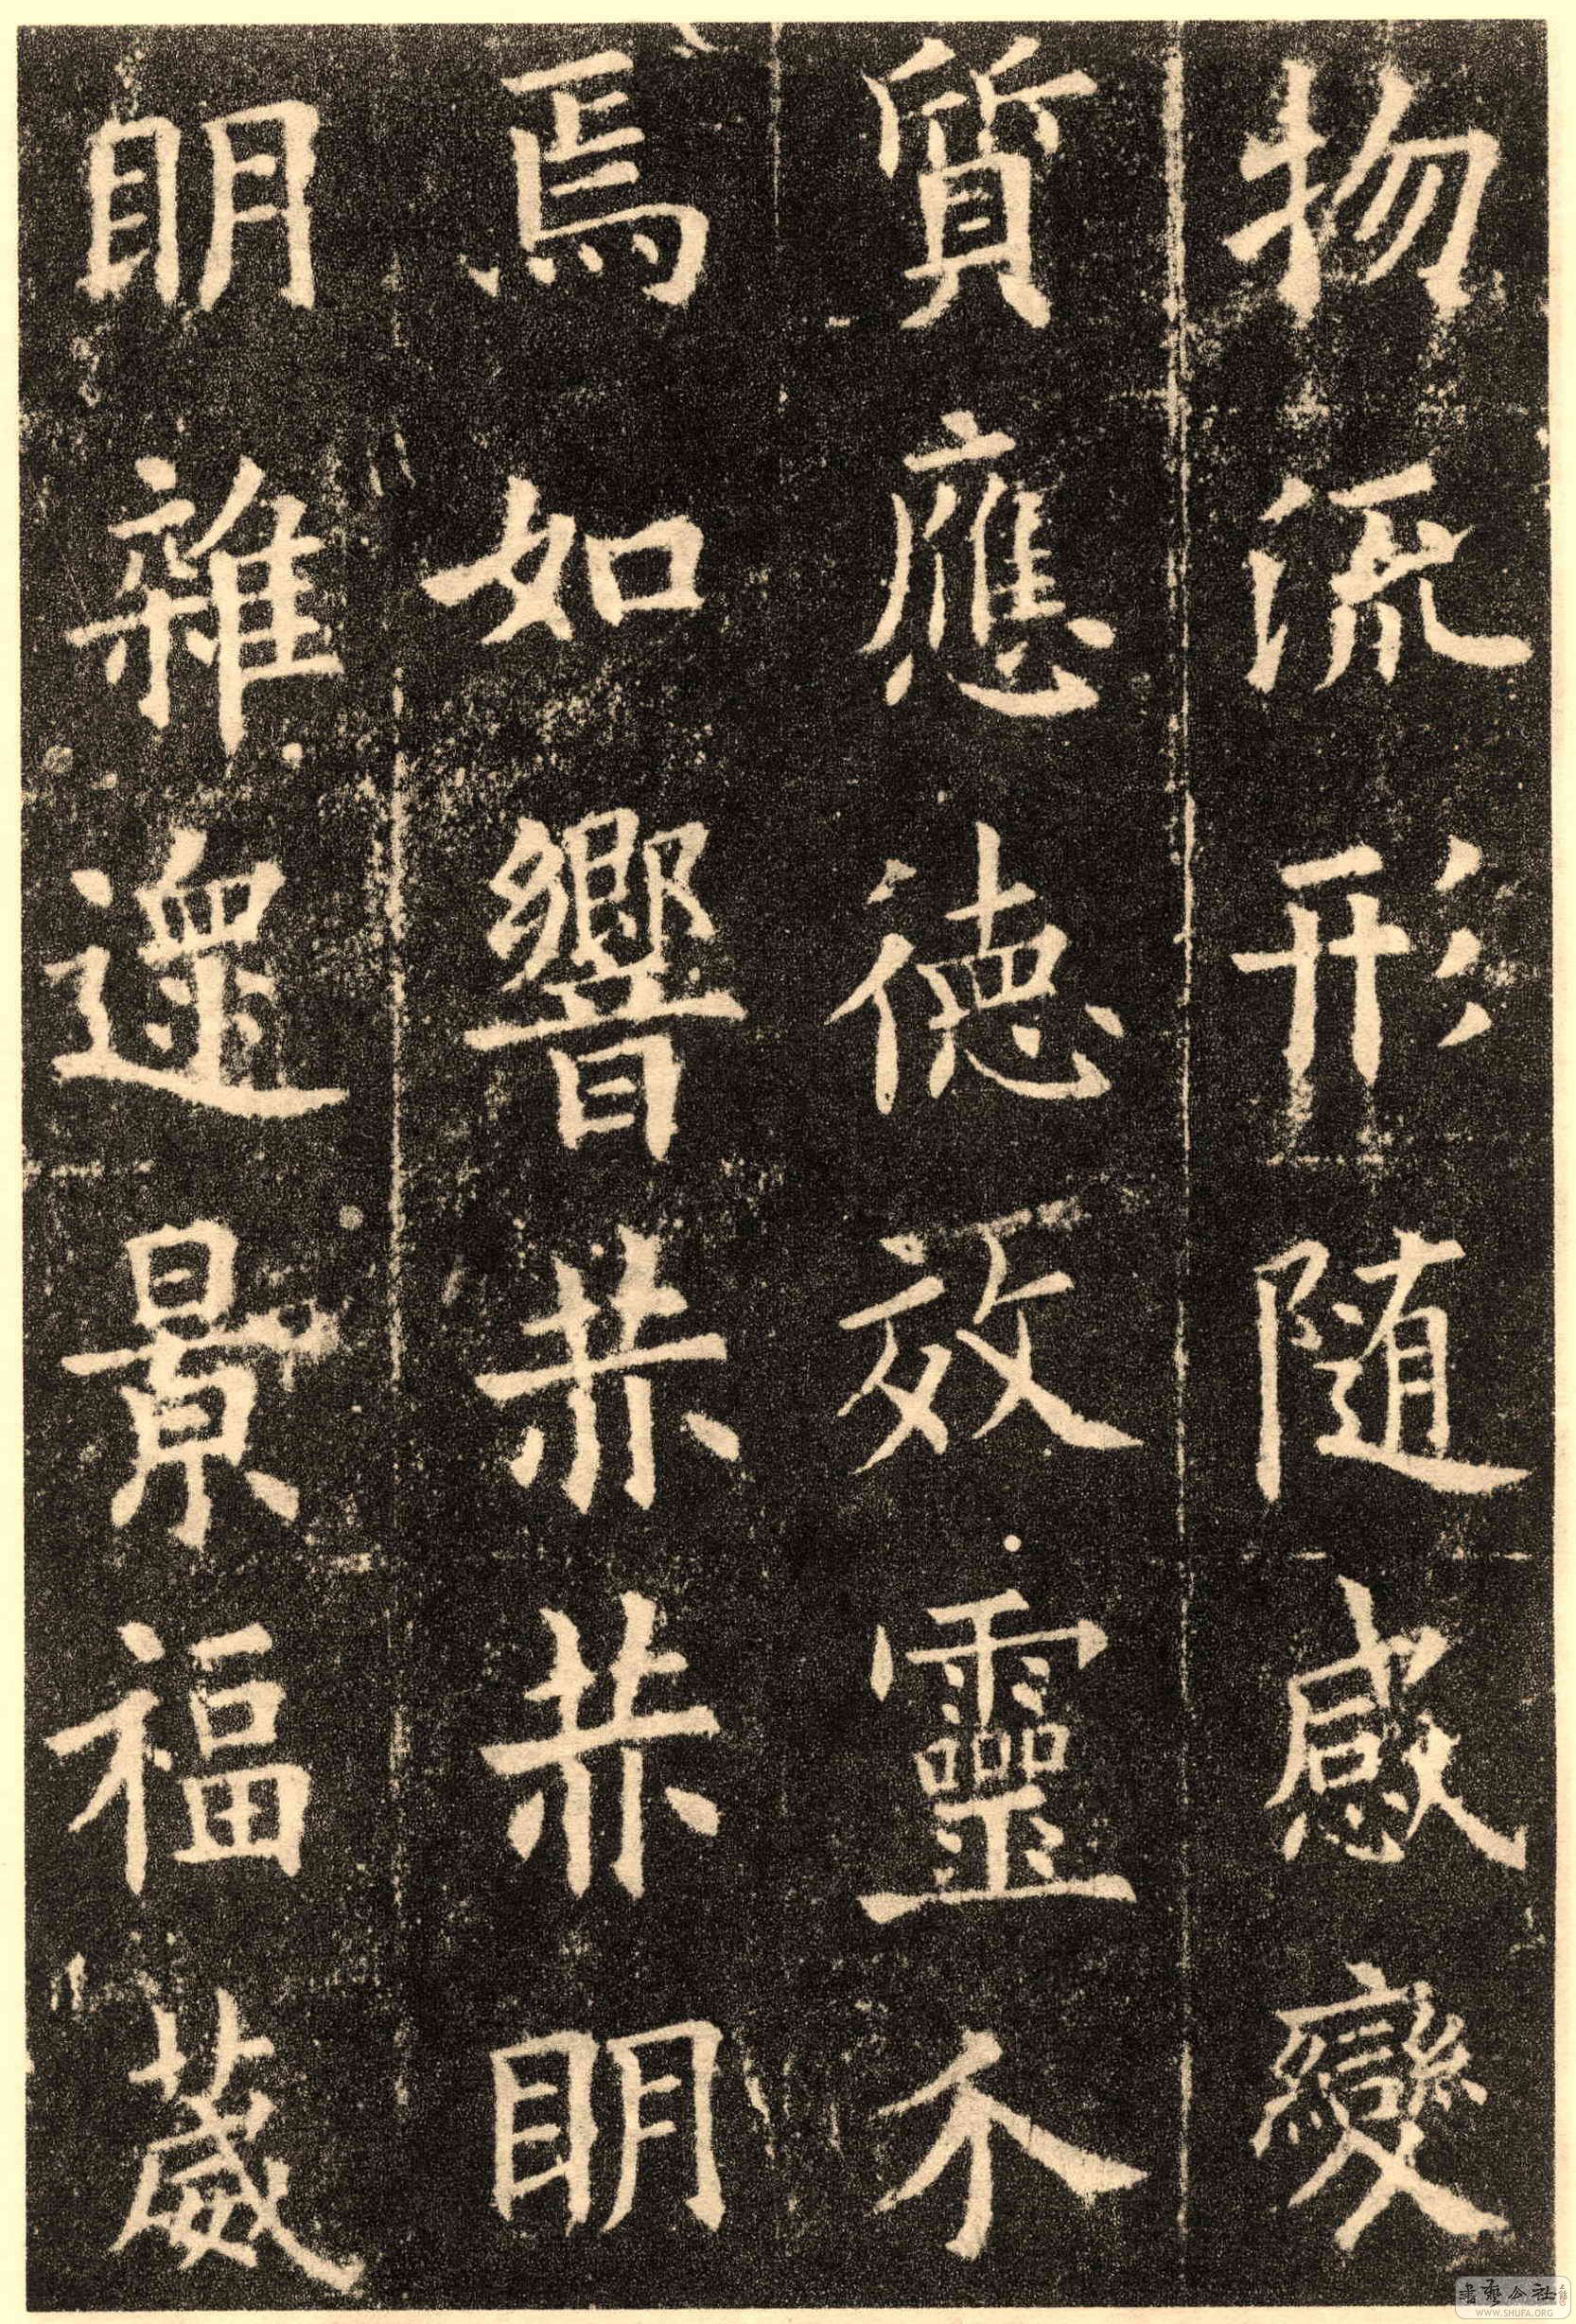 物流形随感變
質應德效靈不
焉如響赫赫明
明雑遝景福葳
書藝公社
WWW.SHUFA.ORG